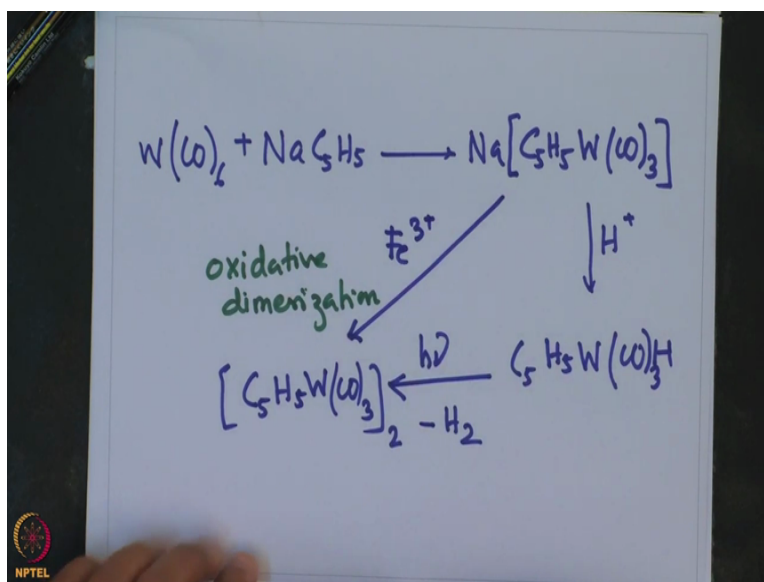 W(CO)₆ + NaC₅H₅ ⟶ Na[C₅H₅W(CO)₃]
Fe³⁺
H⁺
oxidative
dimerization
hν
C₅H₅W(CO)₃H
[C₅H₅W(CO)₃]₂
-H₂
NPTEL